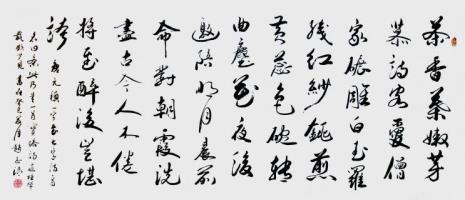 茶香葉嫩芽
慕詩客愛僧
家碾雕白玉羅
織紅紗銚煎
黄蕊色碗轉
曲塵花夜後
邀陪明月晨前
命對朝霞洗
盡古今人不倦
將至醉後豈堪
誇
唐元稹一字至七字詩